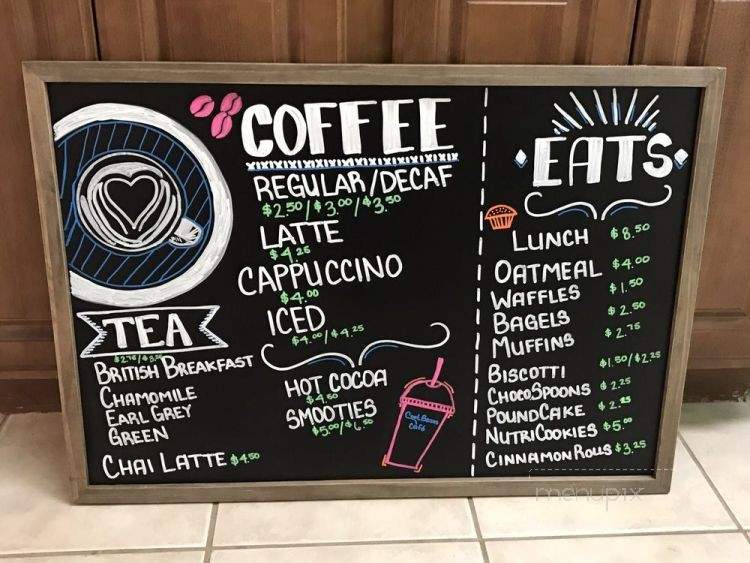 COFFEE
REGULAR/DECAF
$2.50/$3.00/$3.50
LATTE
$4.25
CAPPUCCINO
$4.00
ICED
$4.00/$4.25
HOT COCOA
$4.50
SMOOTIES
$5.00/$6.50
Cool Beans
Cafe
TEA
BRITISH BREAKFAST
CHAMOMILE
EARL GREY
GREEN
CHAI LATTE $4.50
EATS
LUNCH $8.50
OATMEAL $4.00
WAFFLES $1.50
BAGELS $2.50
MUFFINS $2.75
BISCOTTI $1.50/$2.25
CHOCOSPOONS $2.25
POUNDCAKE $2.25
NUTRICOOKIES $5.00
CINNAMON ROLLS $3.25
menupix